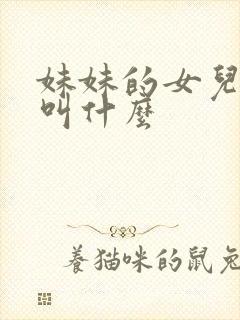 妹妹的女兒
叫什麼
養猫咪的鼠兔